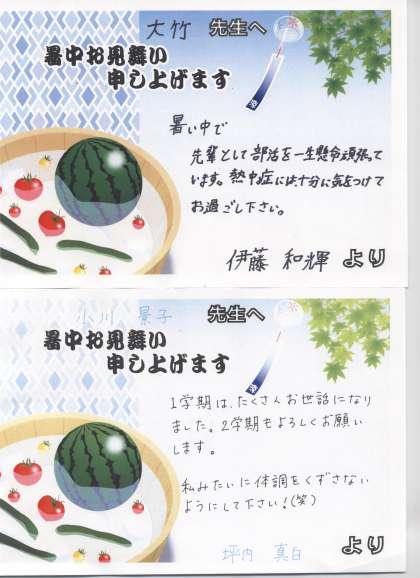 大竹 先生へ
暑中お見舞い
申し上げます
暑い中で
先輩として部活を一生懸命頑張って
います。熱中症には十分に気をつけて
お過ごし下さい。
伊藤 和輝 より
小川 景子 先生へ
暑中お見舞い
申し上げます
1学期は、たくさんお世話になり
ました。2学期もよろしくお願い
します。
私みたいに体調をくずさない
ようにして下さい!(笑)
坪内 真白 より